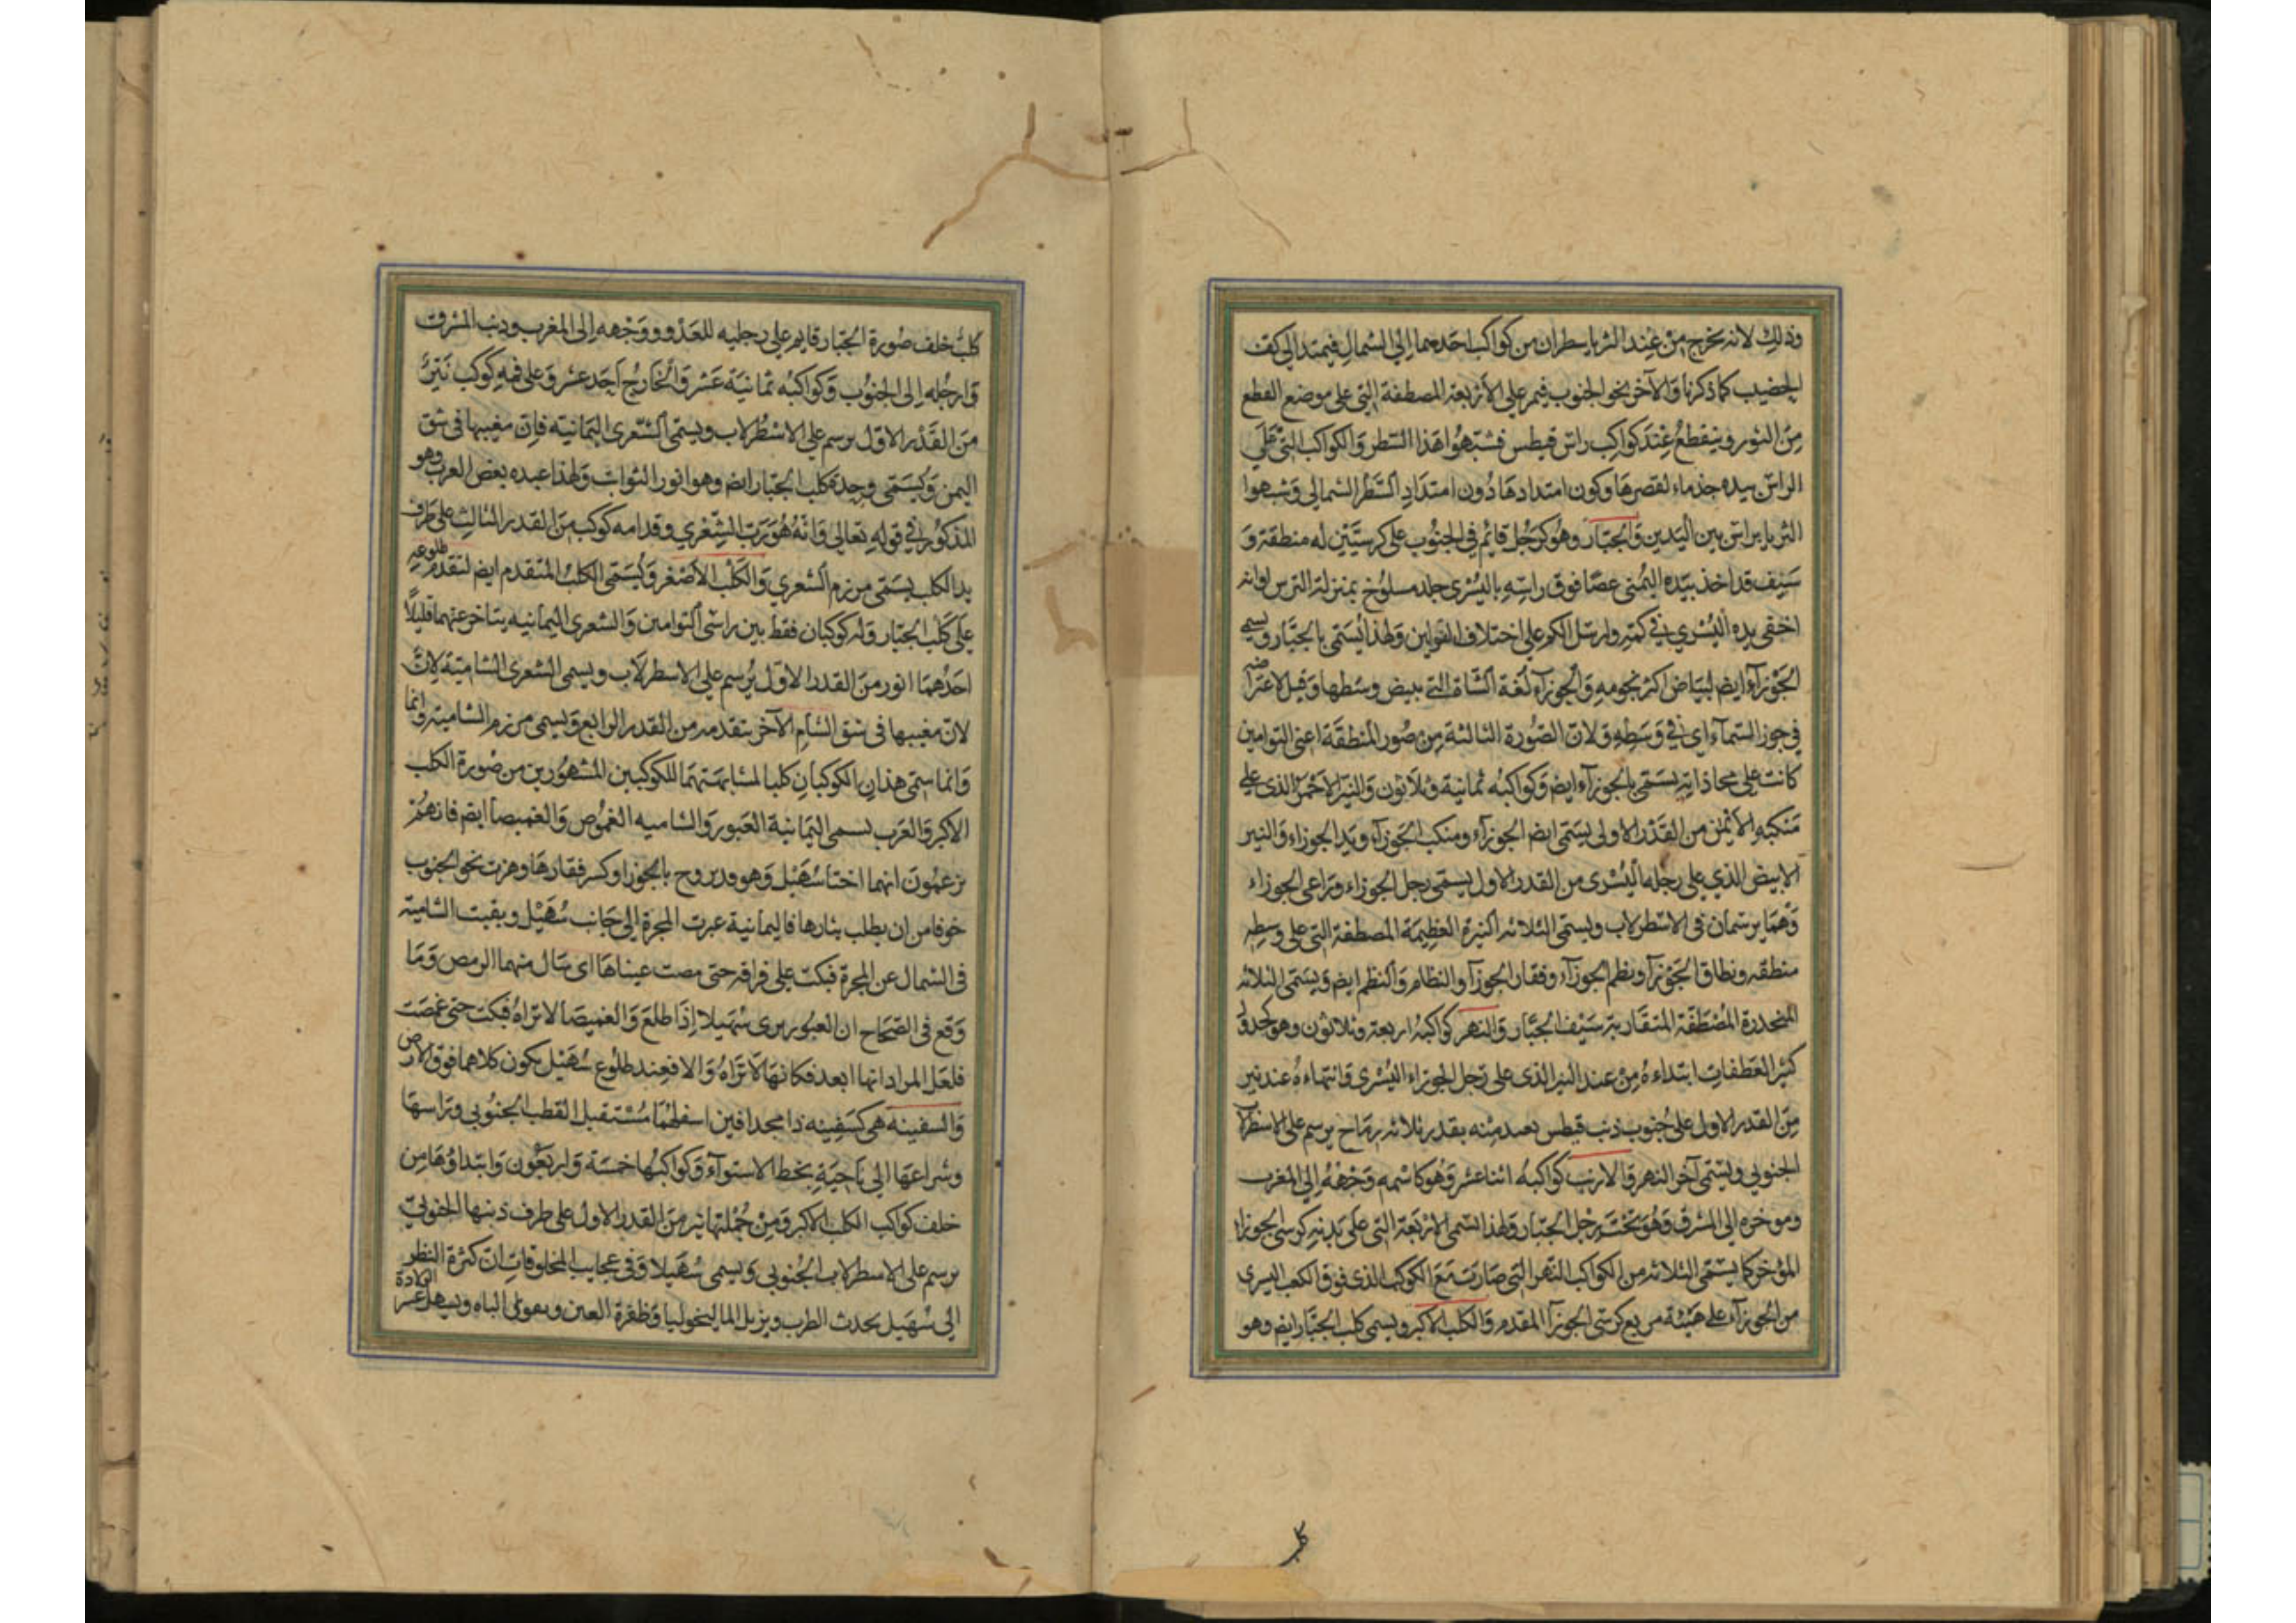 وذلك لانه يخرج من عند الثريا سطران من كواكب احدهما الى الشمال فيمتد الى كف
الخضيب كما ذكرنا والآخر نحو الجنوب فيمر على الأربعة المصطفة التى على موضع القطع
من الثور وينقطع عند كواكب راس قيطس فشبهوا هذا السطر والكواكب التى على
الراس بيده جذماء لقصرها وكون امتدادها دون امتداد السطر الشمالى وشبهوا
الثريا براس بين اليدين والجبار وهو كرجل قائم فى الجنوب على كرسيين له منطقة و
سيف قد اخذ بيده اليمنى عصا فوق راسه باليسرى جلد مسلوخ بمنزلة الترس او انه
اخفى يده اليسرى فى كمه وارسل الكم على اختلاف القولين ولهذا يسمى بالجبار ويسمى
الجوزآء ايضم لبياض اكثر نجومه والجوزآء لغة الشاة التى بيض وسطها وقيل لاعتراضه
فى جوز السمآء اى فى وسطه ولان الصورة الثالثة من صور المنطقة اعنى التوامين
كانت على محاذاته يسمى بالجوزآء ايضم وكواكبه ثمانية وثلاثون والنير الاحمر الذى على
منكبه الأيمن من القدر الاولى يسمى ايضم الجوزآء ومنكب الجوزآء ويد الجوزاء والنير
الابيض الذي على رجله اليسرى من القدر الاول يسمى رجل الجوزاء وراعى الجوزاء
وهما يرسمان فى الاسطرلاب ويسمى الثلاثه النيرة العظيمة المصطفة التى على وسطه
منطقه ونطاق الجوزآ ونظم الجوزآء وفقار الجوزآ والنظام والنظم ايضم ويسمى الثلاثه
المنحدرة المصطفة المتقاربة سيف الجبار والنهر كواكبه اربعة وثلاثون وهو كجدول
كثير العطفات ابتداءه من عند النير الذى على رجل الجوزاء اليسرى وانتهاءه عند نير
من القدر الاول على جنوب ذنب قيطس بعد منه بقدر ثلاثه رماح يرسم على الاسطرلاب
الجنوبي ويسمى آخر النهر والارنب كواكبه اثنا عشر وهو كاسمه وجهه الى المغرب
وموخره الى المشرق وهو تحت رجل الجبار ولهذا يسمى الاربعة التى على بدنه كرسى الجوزاء
المؤخر كما يسمى الثلاثه من الكواكب النهر التى صارت مع الكوكب الذى فوق الكعب اليسرى
من الجوزآء على هيئة مربع كرسى الجوزآ المقدم والكلب الاكبر ويسمى كلب الجبار ايضم وهو
كلب
كلب خلف صورة الجبار قايم على رجليه للعدو ووجهه الى المغرب وذنب المشرق
وارجله الى الجنوب وكواكبه ثمانية عشر والخارج احد عشر وعلى فمه كوكب نير
من القدر الاول يرسم على الاسطرلاب ويسمى الشعرى اليمانية فان مغيبها فى شق
اليمن ويسمى وحده كلب الجبار ايضم وهو انور الثوابت ولهذا عبده بعض العرب وهو
المذكور فى قوله تعالى وانه هو رب الشعرى وقدامه كوكب من القدر الثالث على طرف
يد الكلب يسمى مرزم الشعري والكلب الأصغر ويسمى الكلب المتقدم ايضم لتقدم طلوعه
على كلب الجبار وله كوكبان فقط بين راسى التوامين والشعرى اليمانيه يتاخر عنهما قليلا
احدهما انور من القدر الاول يرسم على الاسطرلاب ويسمى الشعرى الشامية لان
لان مغيبها فى شق الشام الآخر يتقدمه من القدر الرابع ويسمى مرزم الشامية وانما
وانما سمى هذان الكوكبان كلبا لمشابهتهما للكوكبين المشهورين من صورة الكلب
الاكبر والعرب تسمى اليمانية العبور والشاميه الغموص والغميصا ايضم فانهم
يزعمون انهما اختا سهيل وهو قد تزوج بالجوزا وكسر فقارها وهرب نحو الجنوب
خوفا من ان يطلب بثارها فاليمانية عبرت المجرة الى جانب سهيل وبقيت الشامية
فى الشمال عن المجرة فبكت على فراقه حتى مصت عيناها اى سال منهما الرمص وما
وقع فى الصحاح ان العبور يرى سهيلا إذا طلع والغميصا لاتراه فبكت حتى غمصت
فلعل المراد انها ابعد فكانها لاتراه والا فعند طلوع سهيل يكون كلاهما فوق الارض
والسفينه هى كسفينه ذا مجدافين اسفلهما مستقبل القطب الجنوبى وراسها
وشراعها الى ناحية بخط الاستوآء وكواكبها خمسة واربعون وابتداؤها من
خلف كواكب الكلب الاكبر ومن جملتها نير من القدر الاول على طرف ذنبها الجنوبى
يرسم على الاسطرلاب الجنوبى ويسمى سهيلا وفى عجايب المخلوقات ان كثرة النظر
الى سهيل يحدث الطرب ويزيل الماليخوليا وظفرة العين ويقوى الباه ويسهل عسر الولادة